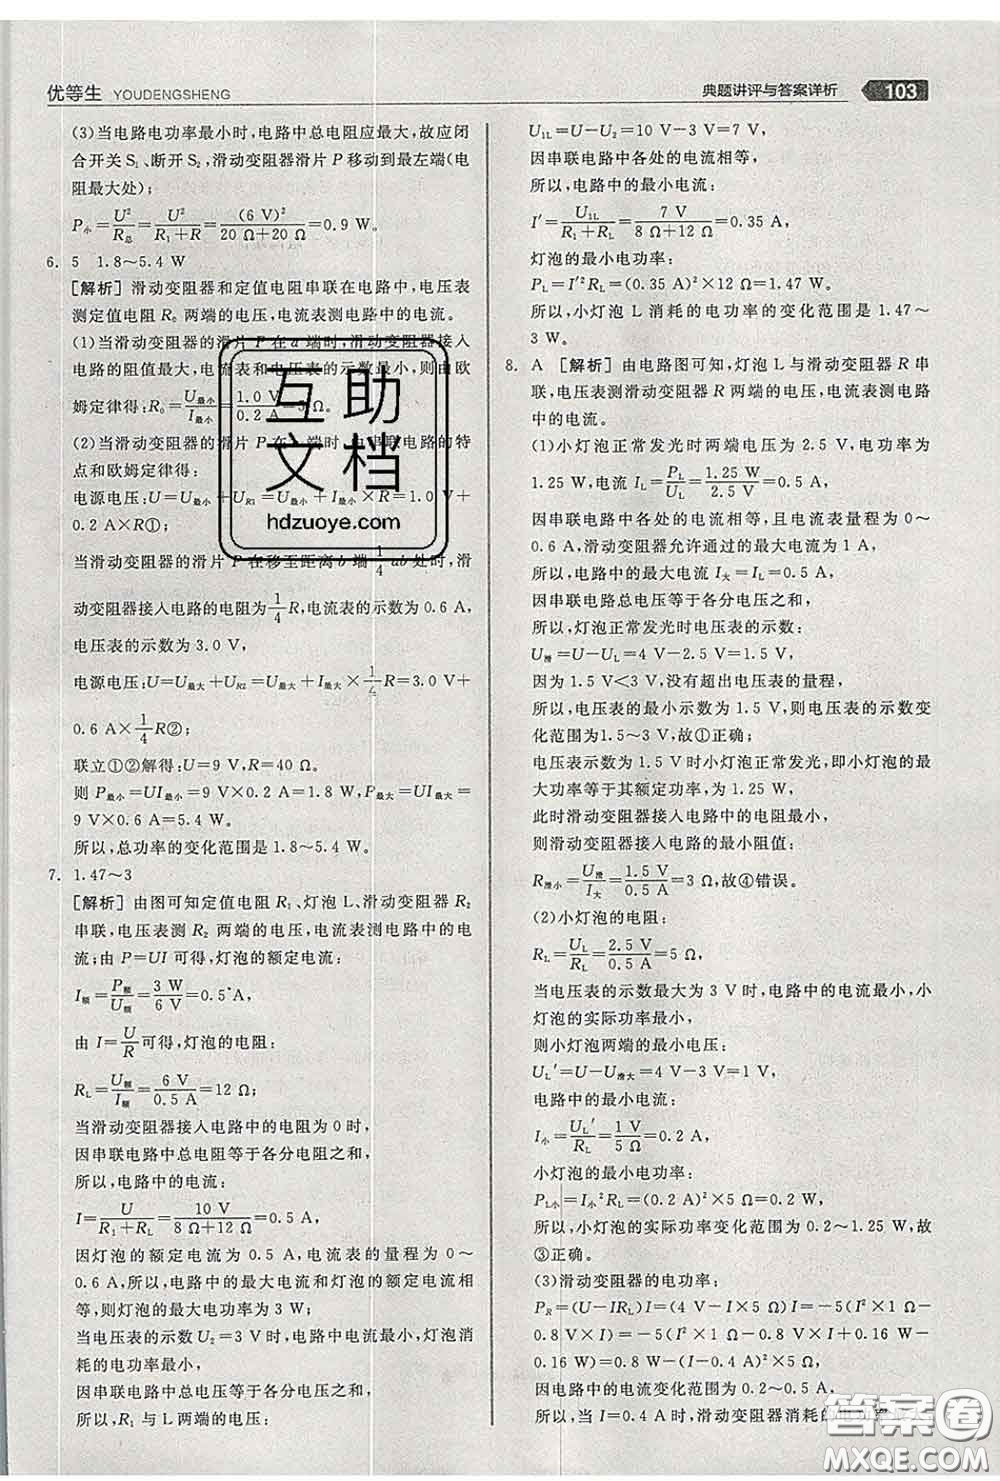 优等生 YOUDENGSHENG
典题讲评与答案详析 103
(3)当电路电功率最小时,电路中总电阻应最大,故应闭
合开关 S₁、断开 S₂,滑动变阻器滑片 P 移动到最左端(电
阻最大处);
P小=U²/R总=U²/(R₁+R)=(6 V)²/(20 Ω+20 Ω)=0.9 W。
6. 5 1.8~5.4 W
[解析] 滑动变阻器和定值电阻串联在电路中,电压表
测定值电阻 R₀ 两端的电压,电流表测电路中的电流。
(1)当滑动变阻器的滑片 P 在 a 端时,滑动变阻器接入
电路的阻值最大,电流表和电压表的示数最小,则由欧
姆定律得:R₀=U最小/I最小=1.0 V/0.2 A=5 Ω。
(2)当滑动变阻器的滑片 P 在 端时,由串联电路的特
点和欧姆定律得:
电源电压:U=U最小+UR1=U最小+I最小×R=1.0 V+
0.2 A×R①;
当滑动变阻器的滑片 P 在移至距离 b 端 1/4 ab 处时,滑
动变阻器接入电路的电阻为 1/4 R,电流表的示数为 0.6 A,
电压表的示数为 3.0 V,
电源电压:U=U最大+UR2=U最大+I最大×1/4 R=3.0 V+
0.6 A×1/4 R②;
联立①②解得:U=9 V,R=40 Ω。
则 P最小=UI最小=9 V×0.2 A=1.8 W,P最大=UI最大=
9 V×0.6 A=5.4 W。
所以,总功率的变化范围是 1.8~5.4 W。
7. 1.47~3
[解析] 由图可知定值电阻 R₁、灯泡 L、滑动变阻器 R₂
串联,电压表测 R₂ 两端的电压,电流表测电路中的电
流;由 P=UI 可得,灯泡的额定电流:
I额=P额/U额=3 W/6 V=0.5 A,
由 I=U/R 可得,灯泡的电阻:
RL=U额/I额=6 V/0.5 A=12 Ω;
当滑动变阻器接入电路中的电阻为 0 时,
因串联电路中总电阻等于各分电阻之和,
所以,电路中的电流:
I=U/(R₁+RL)=10 V/(8 Ω+12 Ω)=0.5 A,
因灯泡的额定电流为 0.5 A,电流表的量程为 0~
0.6 A,所以,电路中的最大电流和灯泡的额定电流相
等,则灯泡的最大电功率为 3 W;
当电压表的示数 U₂=3 V 时,电路中电流最小,灯泡消
耗的电功率最小,
因串联电路中总电压等于各分电压之和,
所以,R₁ 与 L 两端的电压:
U1L=U-U₂=10 V-3 V=7 V,
因串联电路中各处的电流相等,
所以,电路中的最小电流:
I′=U1L/(R₁+RL)=7 V/(8 Ω+12 Ω)=0.35 A,
灯泡的最小电功率:
PL=I′²RL=(0.35 A)²×12 Ω=1.47 W。
所以,小灯泡 L 消耗的电功率的变化范围是 1.47~
3 W。
8. A [解析] 由电路图可知,灯泡 L 与滑动变阻器 R 串
联,电压表测滑动变阻器 R 两端的电压,电流表测电路
中的电流。
(1)小灯泡正常发光时两端电压为 2.5 V,电功率为
1.25 W,电流 IL=PL/UL=1.25 W/2.5 V=0.5 A,
因串联电路中各处的电流相等,且电流表量程为 0~
0.6 A,滑动变阻器允许通过的最大电流为 1 A,
所以,电路中的最大电流 I大=IL=0.5 A,
因串联电路总电压等于各分电压之和,
所以,灯泡正常发光时电压表的示数:
U滑=U-UL=4 V-2.5 V=1.5 V,
因为 1.5 V<3 V,没有超出电压表的量程,
所以,电压表的最小示数为 1.5 V,则电压表的示数变
化范围为 1.5~3 V,故①正确;
电压表示数为 1.5 V 时小灯泡正常发光,即小灯泡的最
大功率等于其额定功率,为 1.25 W,
此时滑动变阻器接入电路中的电阻最小,
则滑动变阻器接入电路的最小阻值:
R滑小=U滑/I大=1.5 V/0.5 A=3 Ω,故④错误。
(2)小灯泡的电阻:
RL=UL/IL=2.5 V/0.5 A=5 Ω,
当电压表的示数最大为 3 V 时,电路中的电流最小,小
灯泡的实际功率最小,
则小灯泡两端的最小电压:
UL′=U-U滑大=4 V-3 V=1 V,
电路中的最小电流:
I小=UL′/RL=1 V/5 Ω=0.2 A,
小灯泡的最小电功率:
PL小=I小²RL=(0.2 A)²×5 Ω=0.2 W,
所以,小灯泡的实际功率变化范围为 0.2~1.25 W,故
③正确。
(3)滑动变阻器的电功率:
PR=(U-IRL)I=(4 V-I×5 Ω)I=-5(I²×1 Ω-
0.8 V×I)=-5(I²×1 Ω-0.8 V×I+0.16 W-
0.16 W)=-5(I-0.4 A)²×5 Ω+0.8 W,
因电路中的电流变化范围为 0.2~0.5 A,
所以,当 I=0.4 A 时,滑动变阻器消耗的
互助
文档
hdzuoye.com
答案圈
MXQE.COM